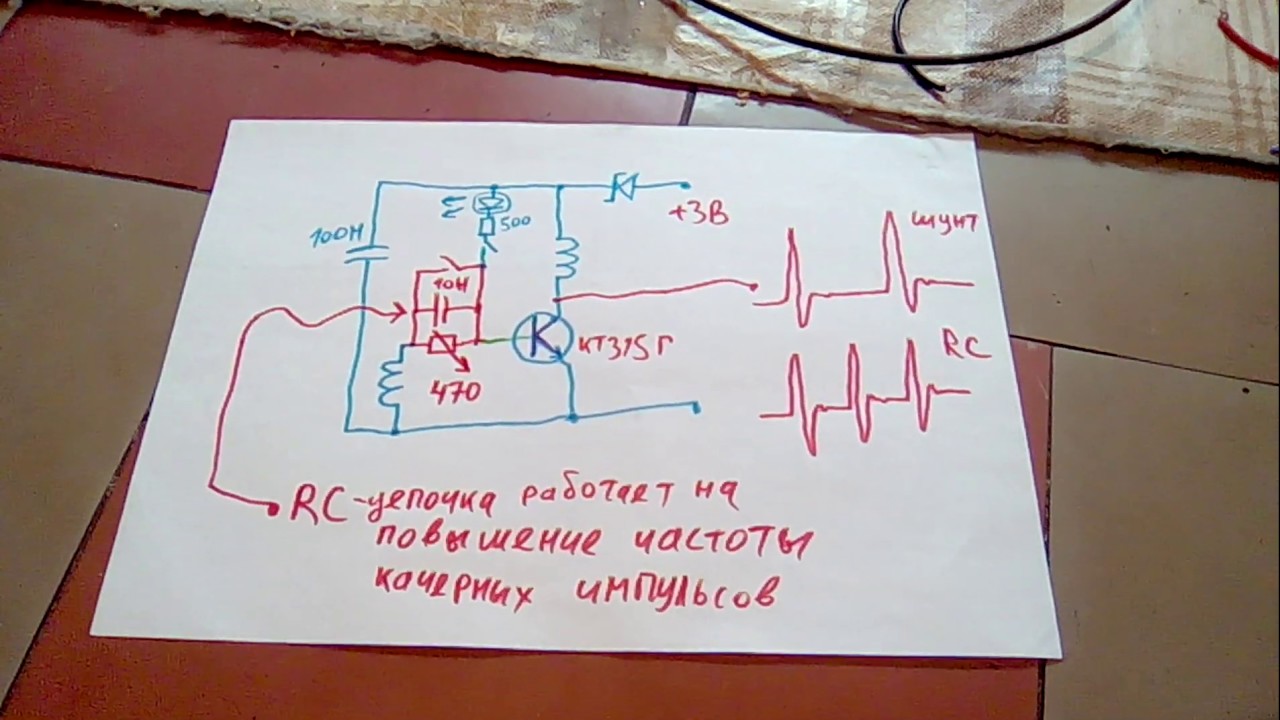 100Н
500
+3В
шунт
10Н
КТ315Г
RC
470
RC-цепочка работает на
повышение частоты
качерных импульсов